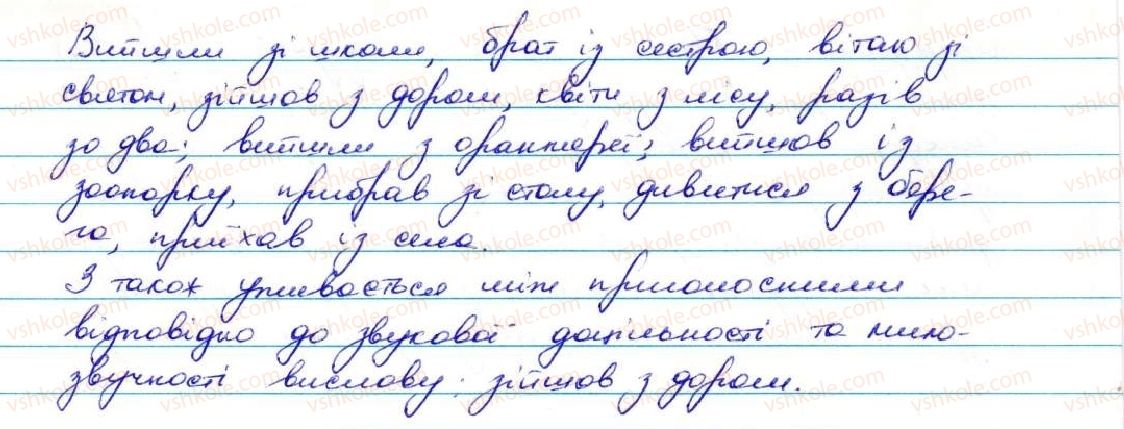 Вийшли зі школи, брат із сестрою, вітаю зі
святом, зійшов з дороги, квіти з лісу, разів
зо два; вийшли з оранжереї; вийшов із
зоопарку, прибрав зі столу, дивитися з бере-
га, приїхав із села.
З також уживається між приголосними
відповідно до звукової доцільності та мило-
звучності вислову: зійшов з дороги.